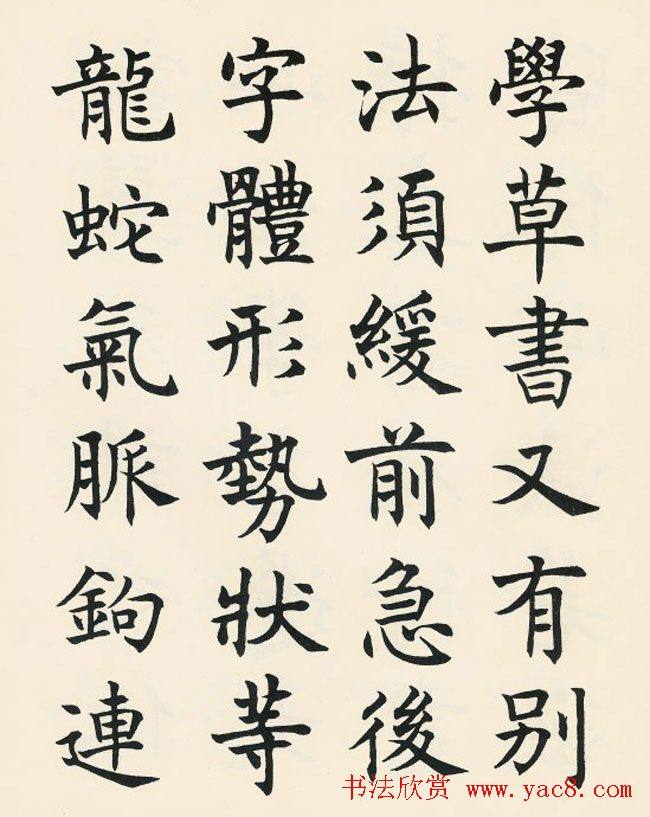 學草書又有別
法須緩前急後
字體形勢狀等
龍蛇氣脈鉤連
书法欣赏 www.yac8.com